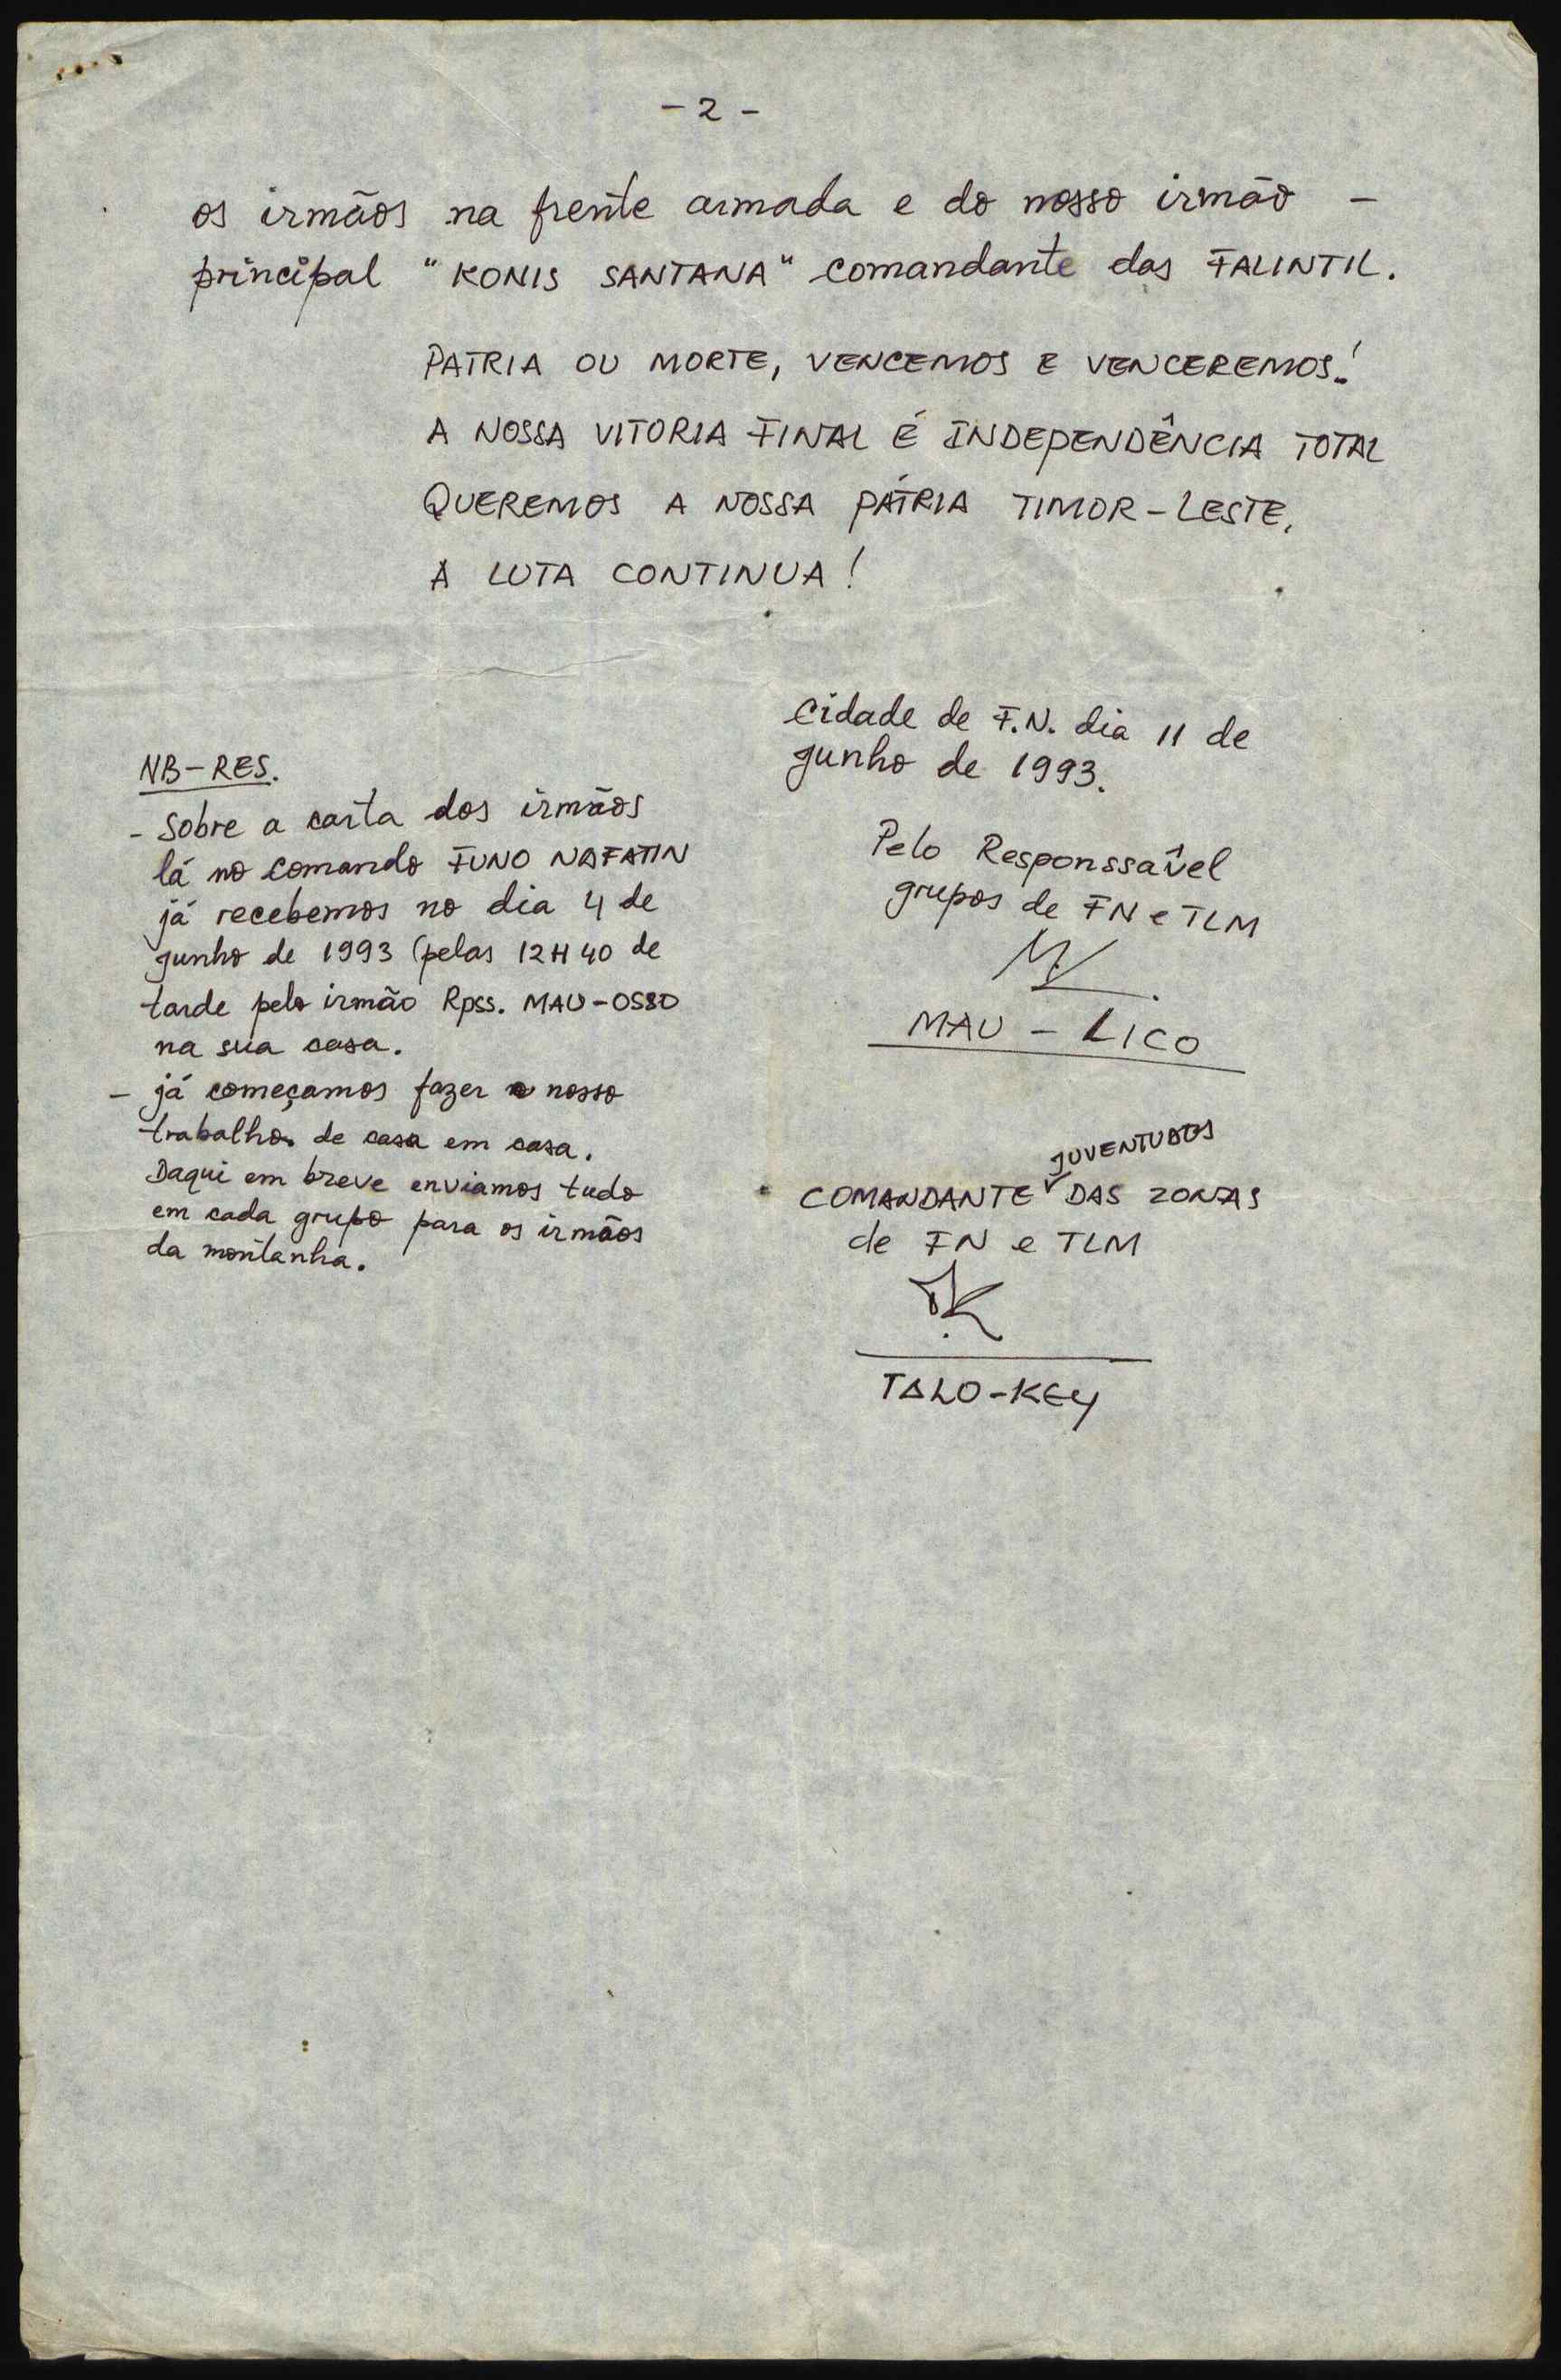 - 2 -
os irmãos na frente armada e do nosso irmão -
principal "KONIS SANTANA" comandante das FALINTIL.
PATRIA OU MORTE, VENCEMOS E VENCEREMOS!
A NOSSA VITORIA FINAL É INDEPENDÊNCIA TOTAL
QUEREMOS A NOSSA PÁTRIA TIMOR-LESTE.
A LUTA CONTINUA!
Cidade de F.N. dia 11 de
junho de 1993.
NB-RES.
- Sobre a carta dos irmãos
lá no comando FUNO NAFATIN
já recebemos no dia 4 de
junho de 1993 (pelas 12H40 de
tarde pelo irmão Rpss. MAU-OSSO
na sua casa.
- já começamos fazer o nosso
trabalho. de casa em casa.
Daqui em breve enviamos tudo
em cada grupo para os irmãos
da montanha.
Pelo Responssavel
grupos de FN e TLM
MAU - LICO
JUVENTUDES
COMANDANTE DAS ZONAS
de FN e TLM
TALO-KEY